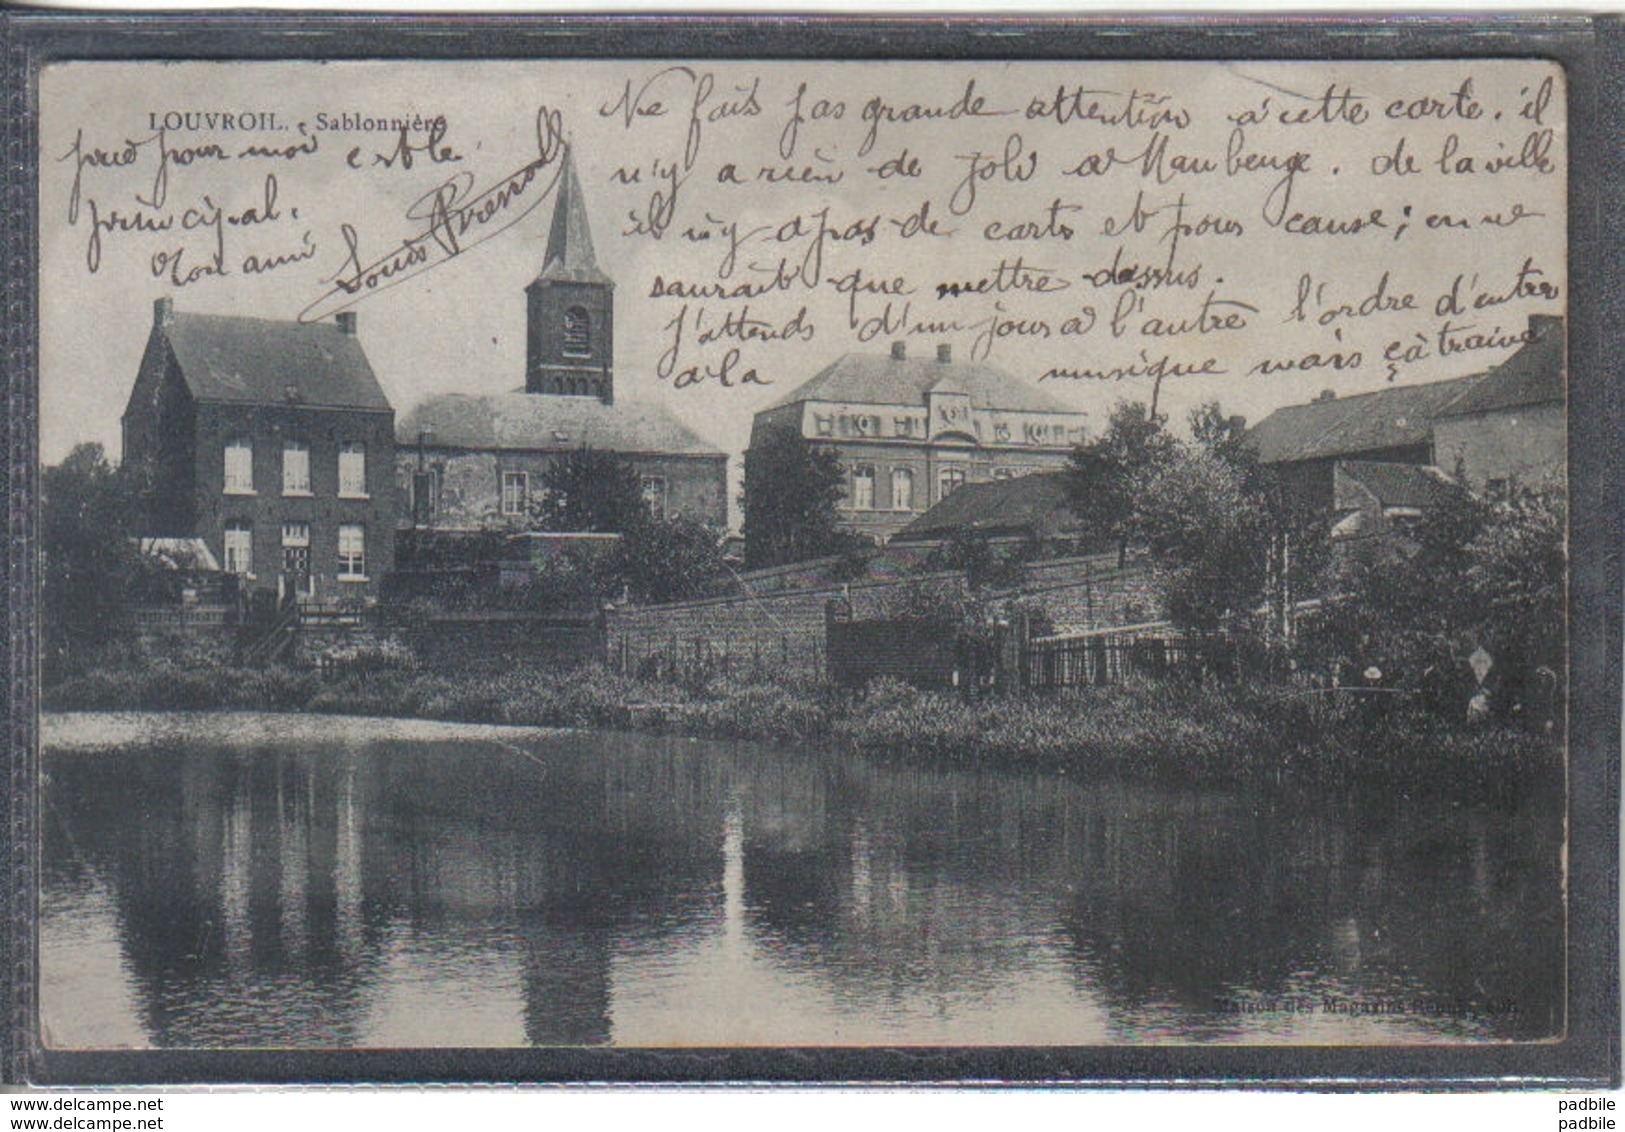 LOUVROIL. - Sablonnière
Ne fais pas grande attention à cette carte. il
n'y a rien de joli à Maubeuge. de la ville
il n'y a pas de carte et pour cause; on ne
saurait que mettre dessus.
J'attends d'un jour à l'autre l'ordre d'entrer
à la musique mais ça traine
pour moi est le
principal.
Ton ami
Louis
Maison des Magasins
www.delcampe.net
www.delcampe.net
padbile
padbile